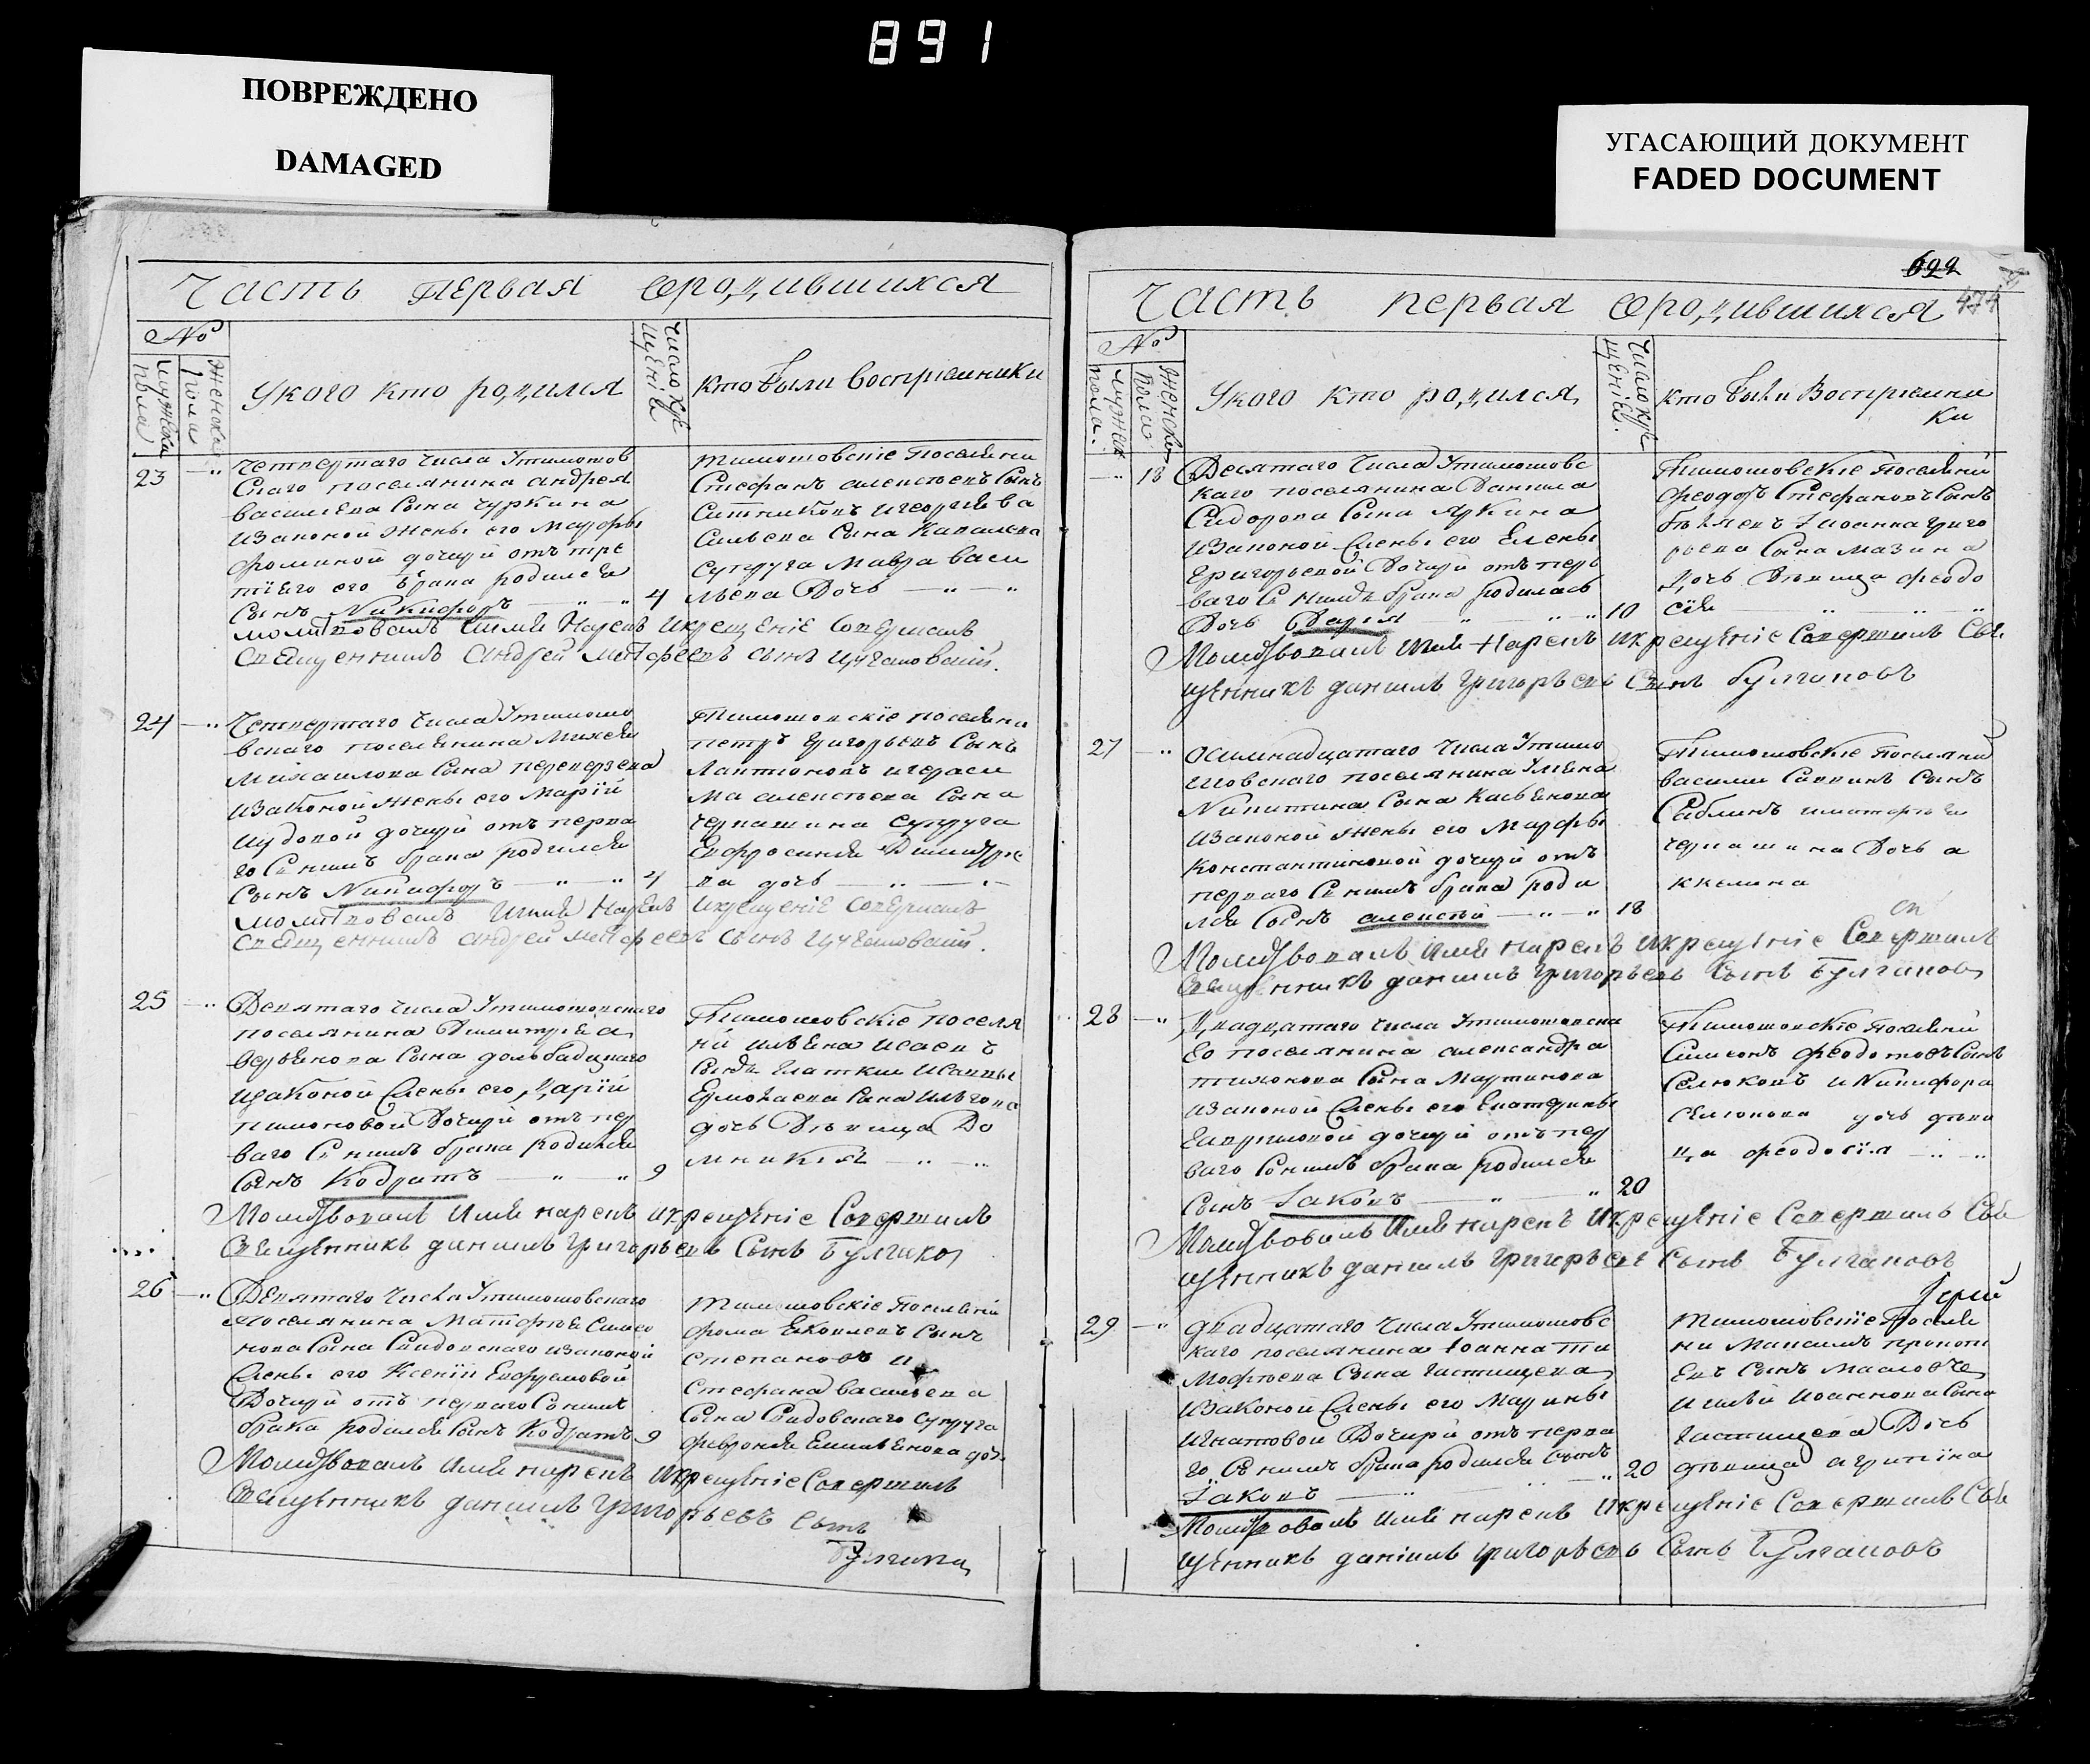 891
ПОВРЕЖДЕНО
DAMAGED
УГАСАЮЩИЙ ДОКУМЕНТ
FADED DOCUMENT
Часть первая ородившихся
№
мужеска пола
женска пола
Укого кто родился
Число крещенія
кто были воспріемники
23
Четвертаго числа Утимошов
скаго поселянина андрея
василиева сына чуркина
Иззаконой жены его Марфы
фоминой дочери отъ тре
тіего его брака родился
сынъ Никифоръ 4
Тимошовскіе поселяни
Стефанъ алексѣевъ сынъ
Ситниковъ игеоргиева
сына
супруга Мавра васи
льева дочь
молитвовалъ имя нарекъ икрещеніе совершалъ
священникъ андрей матфеевъ сынъ
24
Четвертаго числа Утимошо
вскаго поселянина Михея
Михаилова сына переверзева
Иззаконой жены его Маріи
отъ перва
го снимъ брака родился
сынъ Никифоръ 4
Тимошовскіе поселяни
петръ григорьевъ сынъ
Лактионовъ игераси
ма алексѣева сына
чернашина супруга
Евфросиния Димитрие
ва дочь
молитвовалъ имя нарекъ икрещеніе совершалъ
священникъ андрей матфеевъ сынъ
25
Девятаго числа Утимошовскаго
поселянина Димитрія
сына
иззаконой жены его Дарїи
пимоновой дочери отъ пер
ваго снимъ брака родился
сынъ Кодратъ 9
Тимошовскіе поселя
ни
сынъ Гладкии исаввы
Ермолаева сына
дочь дѣвица До
мникія
Молитвовалъ имя нарекъ икрещеніе совершилъ
священникъ данилъ григорьевъ сынъ Булгаков
26
Девятаго числа Утимошовскаго
поселянина Матфѣя Симео
нова сына Садовскаго иззаконой
жены его Ксеніи Евфремовой
дочери отъ перваго сънимъ
брака родился сынъ Кодратъ 9
Тимошовскіе поселяни
фома Яковлевъ сынъ
степановъ и
стефана василева
сына Садовскаго супруга
февронія Емилиенова доч.
Молитвовалъ имя нарекъ икрещеніе совершилъ
священникъ данилъ григорьевъ сынъ
Булгаков
622
474
Часть первая ородившихся
№
мужеска пола
женска пола
Укого кто родился
Число крещеніе
кто были воспріемни
ки
13
Десятаго числа Утимошовс
каго поселянина Данила
Сидорова сына Яркина
Иззаконой жены его Елены
григорьевой дочери отъ пер
ваго съ нимъ брака родилась
дочь Дарія 10
Тимошовскіе поселяни
феодоръ Стефановъ сынъ
бѣляевъ Іоанна григо
рьева сына мазина
дочь дѣвица феодо
сія
Молитвовалъ имя нарекъ икрещеніе совершилъ свя
щенникъ данилъ григорьевъ сынъ булгаковъ
27
Осимнадцатаго числа Утимо
шовскаго поселянина
Никитина сына Касьянова
Иззаконой жены его Марфы
Константиновой дочери отъ
перваго снимъ брака роди
лся сынъ алексѣй 18
Тимошовскіе поселяни
василии Саввинъ сынъ
Саблинъ иматфѣя
чернашина дочь а
килина
Молитвовалъ имя нарекъ икрещеніе совершилъ св
ященникъ данилъ григорьевъ сынъ Булгаков
28
Двадцатаго числа Утимошовска
го поселянина александра
тихонова сына Мартинова
Иззаконой жены его Екатерины
гавриловой дочери отъ пер
ваго сонимъ брака родился
сынъ Іаковъ 20
Тимошовскіе поселяни
Симеонъ феодотовъ сынъ
Селюковъ и Никифора
селюкова дочь дѣви
ца феодосія
Молитвовалъ имя нарекъ икрещеніе совершилъ свя
щенникъ данилъ григорьевъ сынъ Булгаковъ
Іерей
29
двадцатаго числа Утимошовс
каго поселянина Іоанна Ти
мофѣева сына частищева
Иззаконой жены его Марины
Игнатовой дочери отъ перва
го съ нимъ брака родился сынъ
Іаковъ 20
Тимошовскіе поселя
ни Максимъ прокопи
евъ сынъ
Іоаннова сына
частищева дочь
дѣвица агрипіна
Молитвовалъ имя нарекъ икрещеніе совершилъ свя
щенникъ данилъ григорьевъ сынъ Булгаковъ